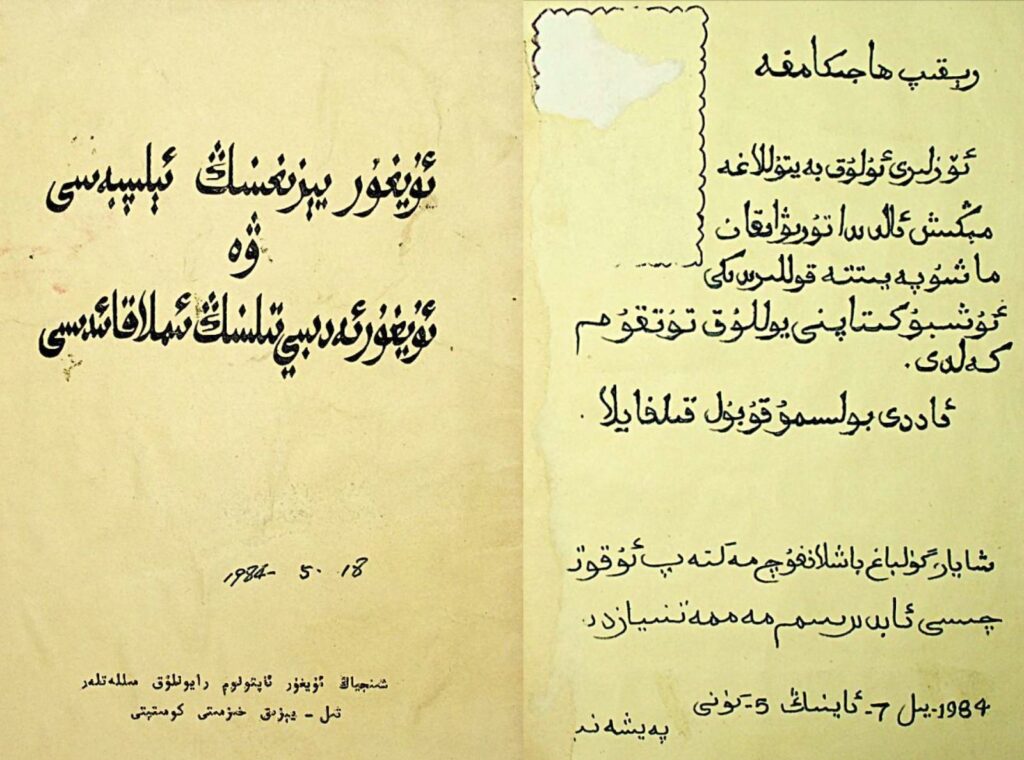 ئۇيغۇر يېزىغىنىڭ ئېلىپبەسى
ۋە
ئۇيغۇر ئەدىبىي تىلىنىڭ ئىملا قائىدىسى
1984- 5. 18
شىنجياڭ ئۇيغۇر ئاپتونوم رايونلۇق مىللەتلەر
تىل - يېزىق خىزمىتى كومىتېتى
رېقىپ ھاجىكامغە
ئۆزلىرى ئۇلۇق بەيتۇللاغە
مېڭىش ئالدىدا تۇرىۋاتقان
ماشۇ پەيىتتە قوللىرىدىكى
ئۇشبۇ كىتاپنى يوللۇق تۇتقۇم
كەلدى.
ئاددى بولسىمۇ قۇبۇل قىلغايلا.
شايار گۈلباغ باشلانغۇچ مەكتەپ ئوقۇت
چىسى مەممەتنىيازدىن
1984-يىل 7-ئاينىڭ 5-كۈنى
پەيشەنبە